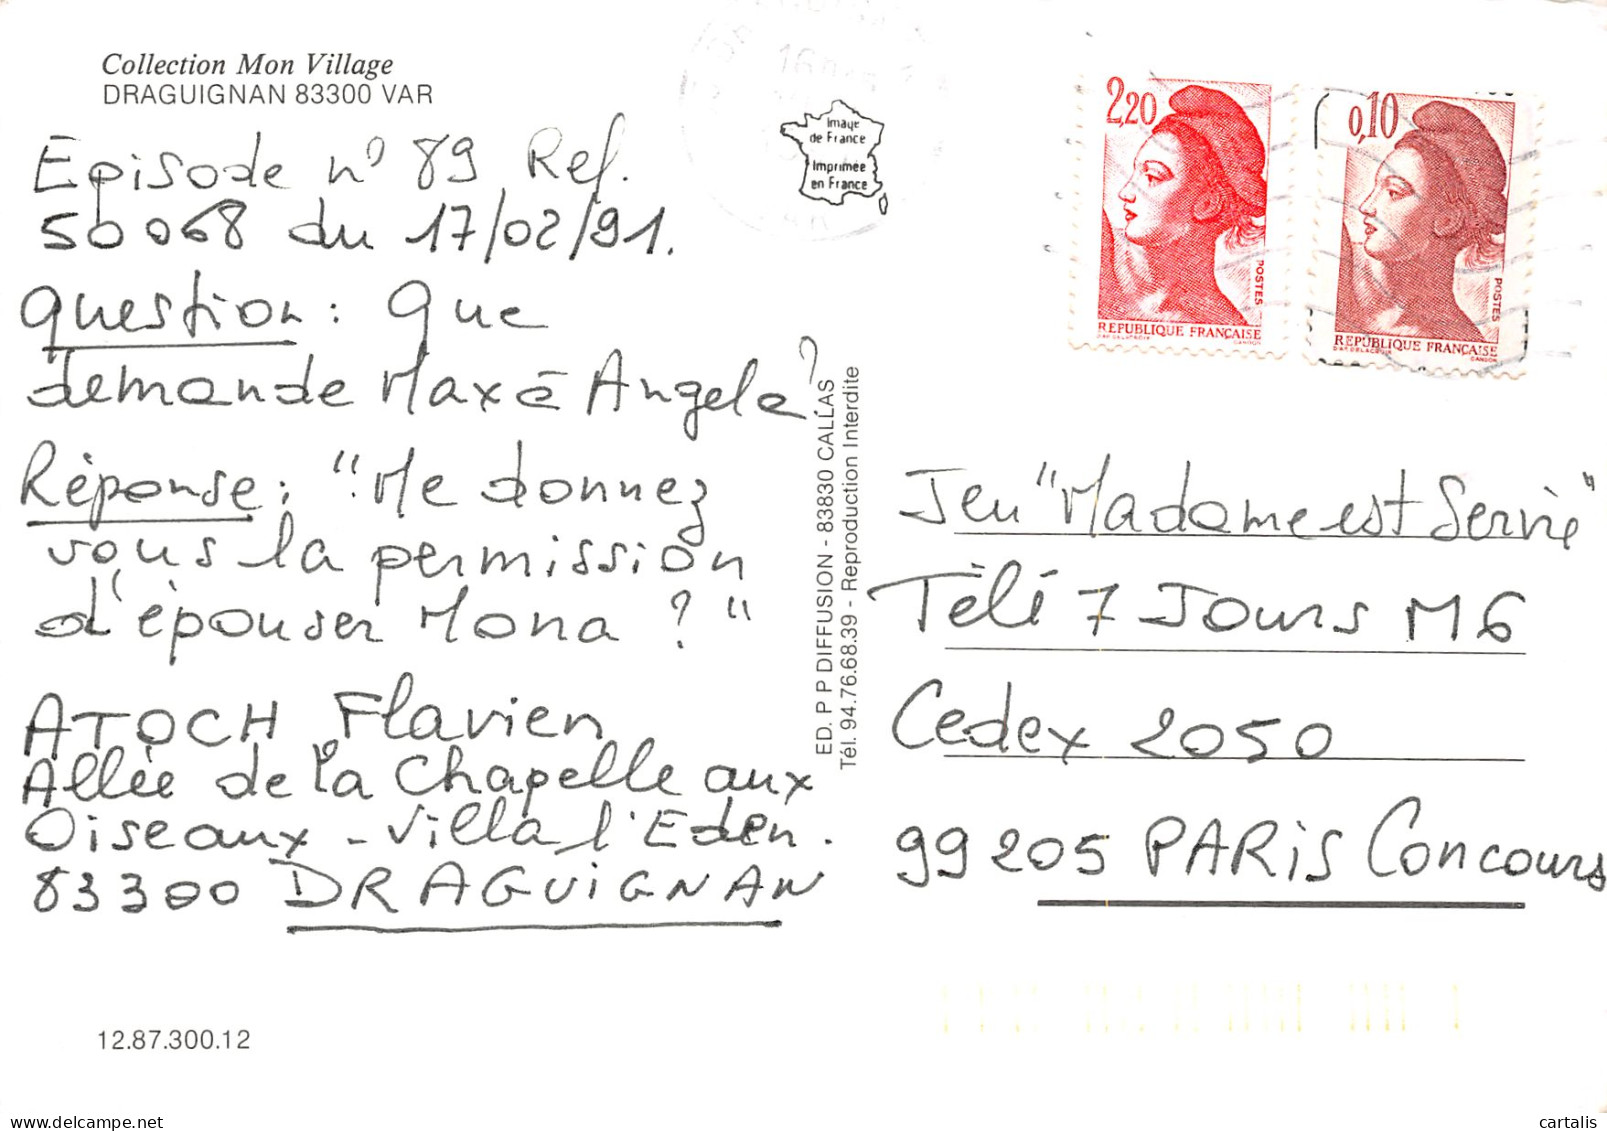 Collection Mon Village
DRAGUIGNAN 83300 VAR
Episode n° 89 Ref.
50068 du 17/02/91.
Question : Que
demande Max à Angela?
Réponse : "Me donnez
vous la permission
d'épouser Mona ?"
ATOCH Flavien
Allée de la Chapelle aux
Oiseaux - Villa l'Eden.
83300 DRAGUIGNAN
12.87.300.12
Image
de France
Imprimée
en France
ED. P P DIFFUSION - 83830 CALLAS
Tél. 94.76.68.39 - Reproduction Interdite
2,20
POSTES
REPUBLIQUE FRANÇAISE
0,10
POSTES
REPUBLIQUE FRANÇAISE
Jeu "Madame est Servie"
Télé 7 Jours M6
Cedex 2050
99205 PARIS Concours
cartalis